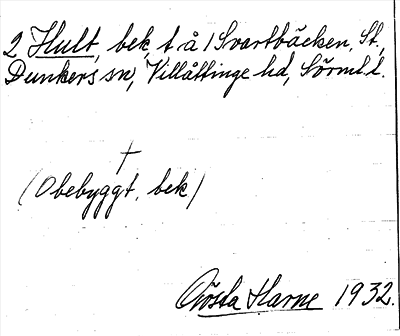 2 Hult, bek, t å 1 Svartbäcken, St.
Dunkers sn, Villåttinge hd, Sörml l.
†
(Obebyggt, bek)
Gösta Harne 1932.